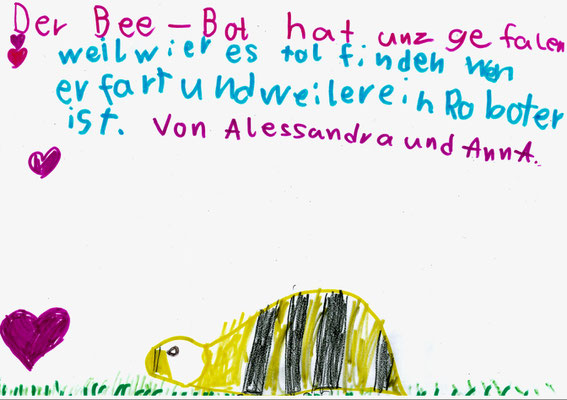 Der Bee-Bot hat unz gefalen
weil wier es tol finden wen
er fart und weil er ein Roboter
ist. Von Alessandra und AnnA.